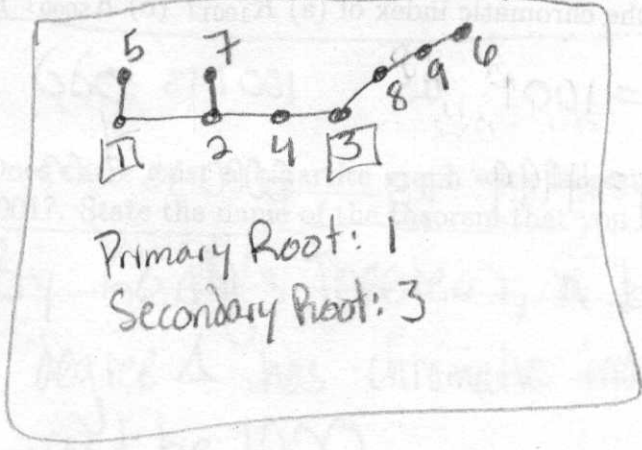 5 7 6
9
8
1 2 4 3
Primary Root: 1
Secondary Root: 3